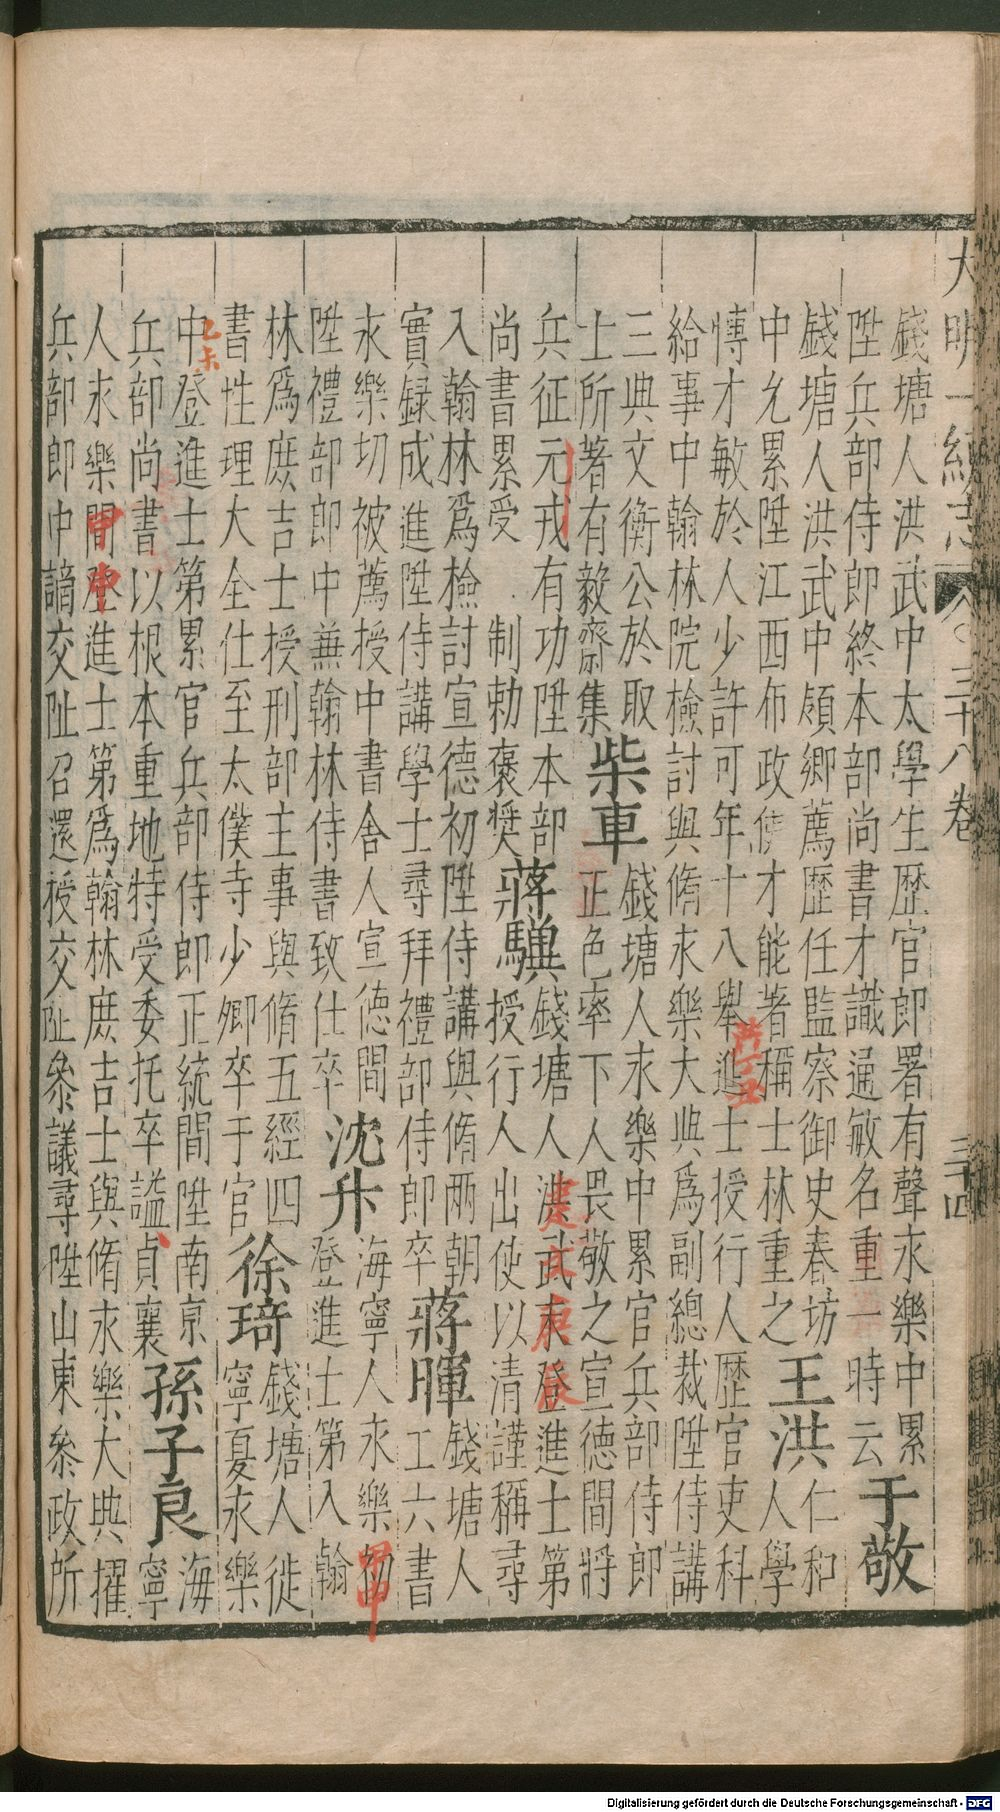 大明一統志 三十八卷 三十四
錢塘人洪武中太學生歷官郎署有聲永樂中累
陞兵部侍郎終本部尚書才識通敏名重一時云
于敬
錢塘人洪武中領鄉薦歷任監察御史春坊
中允累陞江西布政使才能著稱士林重之
王洪
仁和
人學
慱才敏於人少許可年十八舉進士授行人歷官吏科
給事中翰林院檢討與脩永樂大典爲副總裁陞侍講
三典文衡公於取
士所著有毅齋集
柴車
錢塘人永樂中累官兵部侍郎
正色率下人畏敬之宣德間將
兵征元戎有功陞本部
尚書累受 制勅褒奬
蔣驥
錢塘人洪武末登進士第
授行人出使以清謹稱尋
建文庚辰
入翰林爲檢討宣德初陞侍講與脩兩朝
實録成進陞侍講學士尋拜禮部侍郎卒
蔣暉
錢塘人
工六書
永樂切被薦授中書舍人宣德間
陞禮部郎中兼翰林侍書致仕卒
沈升
海寧人永樂初
登進士第入翰
甲申
林爲庶吉士授刑部主事與脩五經四
書性理大全仕至太僕寺少卿卒于官
徐琦
錢塘人徙
寧夏永樂
乙未
中登進士第累官兵部侍郎正統間陞南京
兵部尚書以根本重地特受委托卒謚貞襄
孫子良
海
寧
人永樂間登進士第爲翰林庶吉士與脩永樂大典擢
兵部郎中謫交阯召還授交阯叅議尋陞山東叅政所
甲申
Digitalisierung gefördert durch die Deutsche Forschungsgemeinschaft - DFG